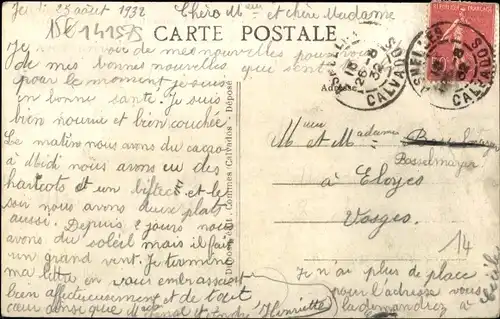 Jeudi 25 août 1932 Chère Mme et chère Madame
14 1573
CARTE POSTALE
Je
de mes nouvelles pour vous
de mes bonnes nouvelles qui sont
pour le moment je suis
en bonne santé. Je suis
bien nourrie et bien couchée.
Le matin nous avons du cacao
à Midi nous avons eu des
haricots et un bifteck et le
soir nous avons deux plats
aussi. Depuis 2 jours nous
avons du soleil mais il fait
un grand vent. Je termine
ma lettre en vous embrassant
bien affectueusement et de tout
cœur ainsi que
Henriette
Déposé
Adresse
RÉPUBLIQUE FRANÇAISE
26-8
32
CALVADOS
CALVADOS
M et Madame
Bosselmeyer
à Eloyes
Vosges
14
Je n'ai plus de place
pour l'adresse vous
la demandrez à